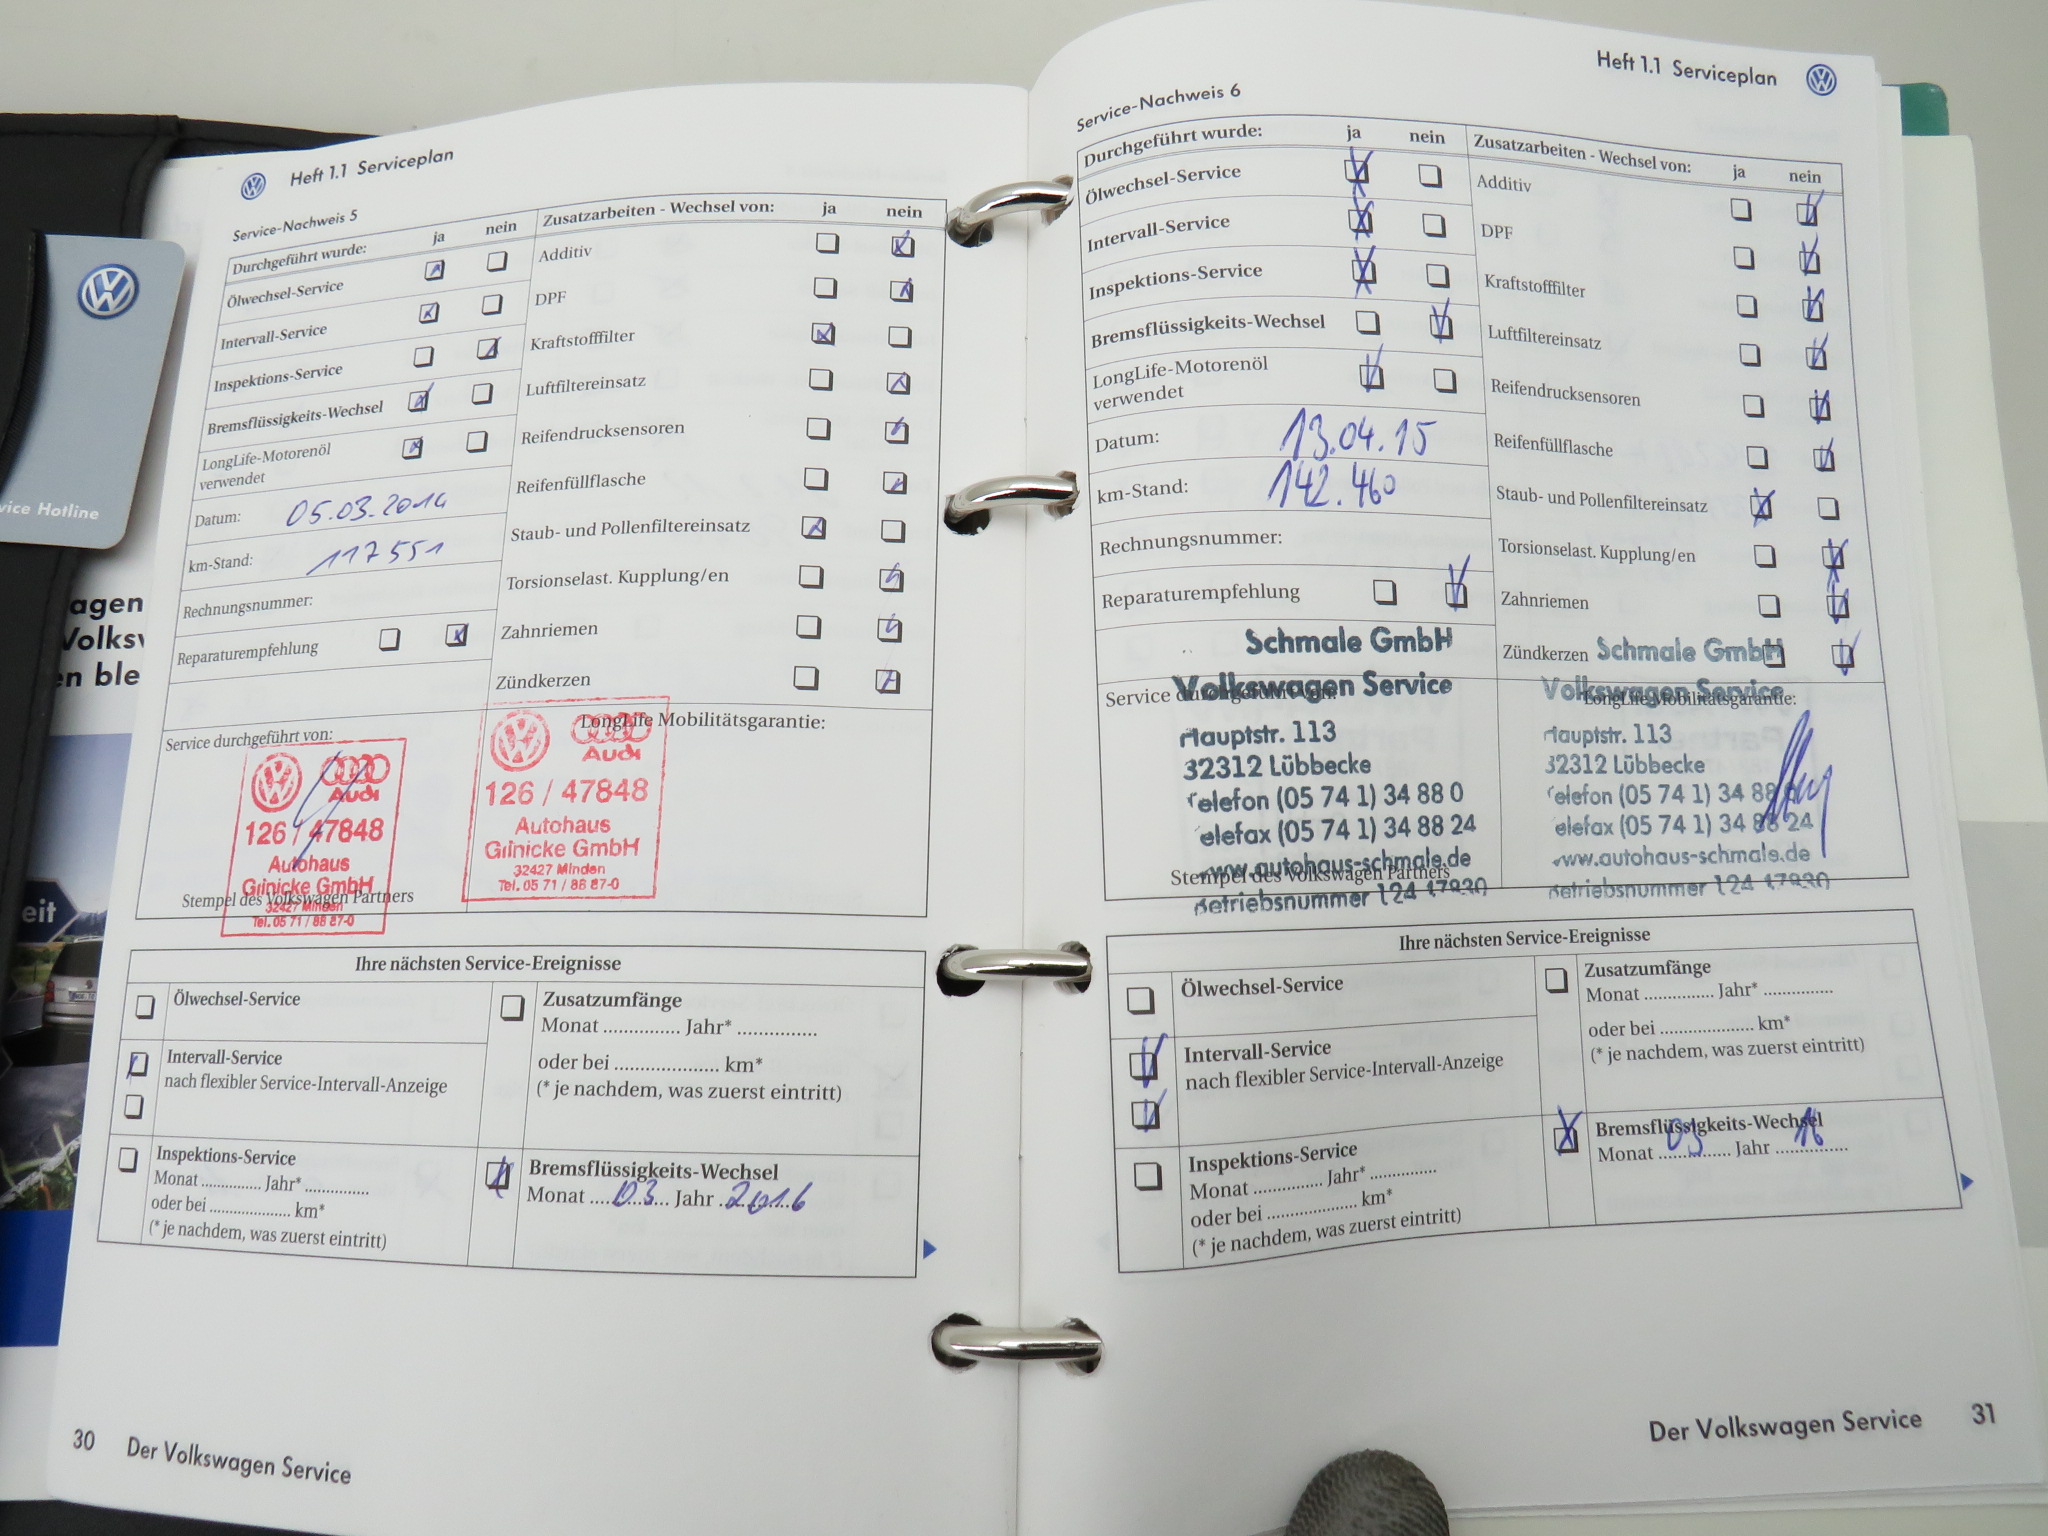 Heft 1.1 Serviceplan
Service-Nachweis 5
Durchgeführt wurde: ja nein
Ölwechsel-Service
Intervall-Service
Inspektions-Service
Bremsflüssigkeits-Wechsel
LongLife-Motorenöl
verwendet
Datum: 05.03.2014
km-Stand: 117551
Rechnungsnummer:
Reparaturempfehlung
Zusatzarbeiten - Wechsel von: ja nein
Additiv
DPF
Kraftstofffilter
Luftfiltereinsatz
Reifendrucksensoren
Reifenfüllflasche
Staub- und Pollenfiltereinsatz
Torsionselast. Kupplung/en
Zahnriemen
Zündkerzen
Service durchgeführt von:
Audi
126 / 47848
Autohaus
Glinicke GmbH
32427 Minden
Tel. 05 71 / 88 87-0
Stempel des Volkswagen Partners
LongLife Mobilitätsgarantie:
Audi
126 / 47848
Autohaus
Glinicke GmbH
32427 Minden
Tel. 05 71 / 88 87-0
Ihre nächsten Service-Ereignisse
Ölwechsel-Service
Intervall-Service
nach flexibler Service-Intervall-Anzeige
Inspektions-Service
Monat ............. Jahr* ..............
oder bei .................. km*
(* je nachdem, was zuerst eintritt)
Zusatzumfänge
Monat .............. Jahr* ...............
oder bei .................... km*
(* je nachdem, was zuerst eintritt)
Bremsflüssigkeits-Wechsel
Monat 03 Jahr 2016
30 Der Volkswagen Service
Heft 1.1 Serviceplan
Service-Nachweis 6
Durchgeführt wurde: ja nein
Ölwechsel-Service
Intervall-Service
Inspektions-Service
Bremsflüssigkeits-Wechsel
LongLife-Motorenöl
verwendet
Datum: 13.04.15
km-Stand: 142.460
Rechnungsnummer:
Reparaturempfehlung
Zusatzarbeiten - Wechsel von: ja nein
Additiv
DPF
Kraftstofffilter
Luftfiltereinsatz
Reifendrucksensoren
Reifenfüllflasche
Staub- und Pollenfiltereinsatz
Torsionselast. Kupplung/en
Zahnriemen
Zündkerzen
Service durchgeführt von:
Schmale GmbH
Volkswagen Service
Hauptstr. 113
32312 Lübbecke
Telefon (05 74 1) 34 88 0
elefax (05 74 1) 34 88 24
www.autohaus-schmale.de
Betriebsnummer 124 17930
Stempel des Volkswagen Partners
LongLife Mobilitätsgarantie:
Schmale GmbH
Volkswagen Service
Hauptstr. 113
32312 Lübbecke
Telefon (05 74 1) 34 88 0
elefax (05 74 1) 34 88 24
www.autohaus-schmale.de
Betriebsnummer 124 17930
Ihre nächsten Service-Ereignisse
Ölwechsel-Service
Intervall-Service
nach flexibler Service-Intervall-Anzeige
Inspektions-Service
Monat .............. Jahr* .............
oder bei .................. km*
(* je nachdem, was zuerst eintritt)
Zusatzumfänge
Monat .............. Jahr* ..............
oder bei .................. km*
(* je nachdem, was zuerst eintritt)
Bremsflüssigkeits-Wechsel
Monat 03 Jahr 16
Der Volkswagen Service 31
vice Hotline
agen
Volksw
en ble
eit